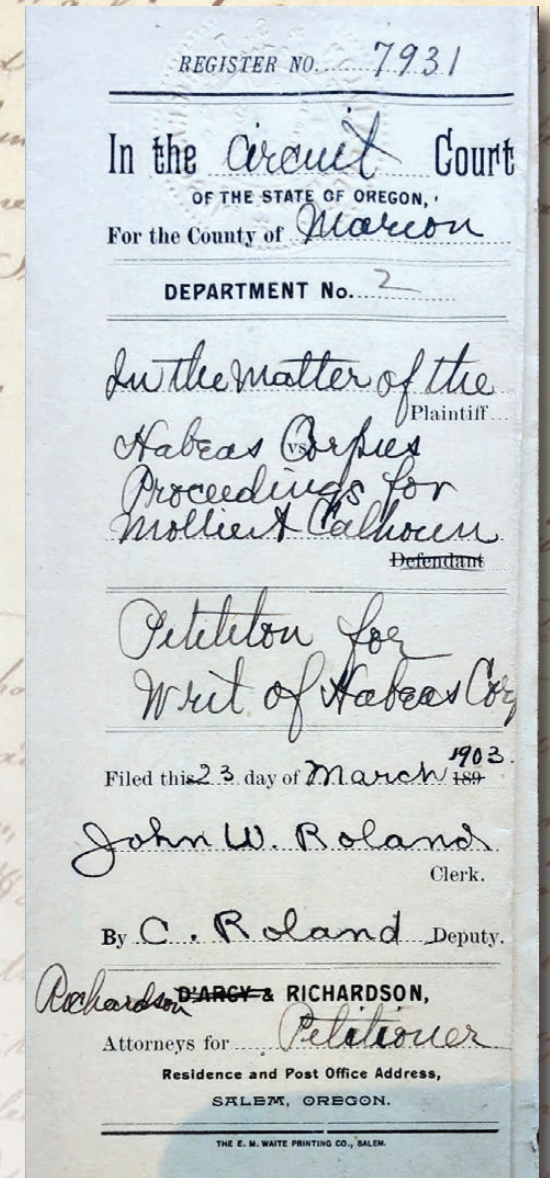 REGISTER NO. 7931
In the Circuit Court
OF THE STATE OF OREGON,
For the County of Marion
DEPARTMENT No. 2
In the Matter of the
Plaintiff
Habeas Corpus
vs
Proceedings for
Mollie A Calhoun
Defendant
Petition for
Writ of Habeas Corp
Filed this 23 day of March 1903. 189
John W. Roland
Clerk.
By C. Roland Deputy.
Richardson D'ARCY & RICHARDSON,
Attorneys for Petitioner
Residence and Post Office Address,
SALEM, OREGON.
THE E. M. WAITE PRINTING CO., SALEM.